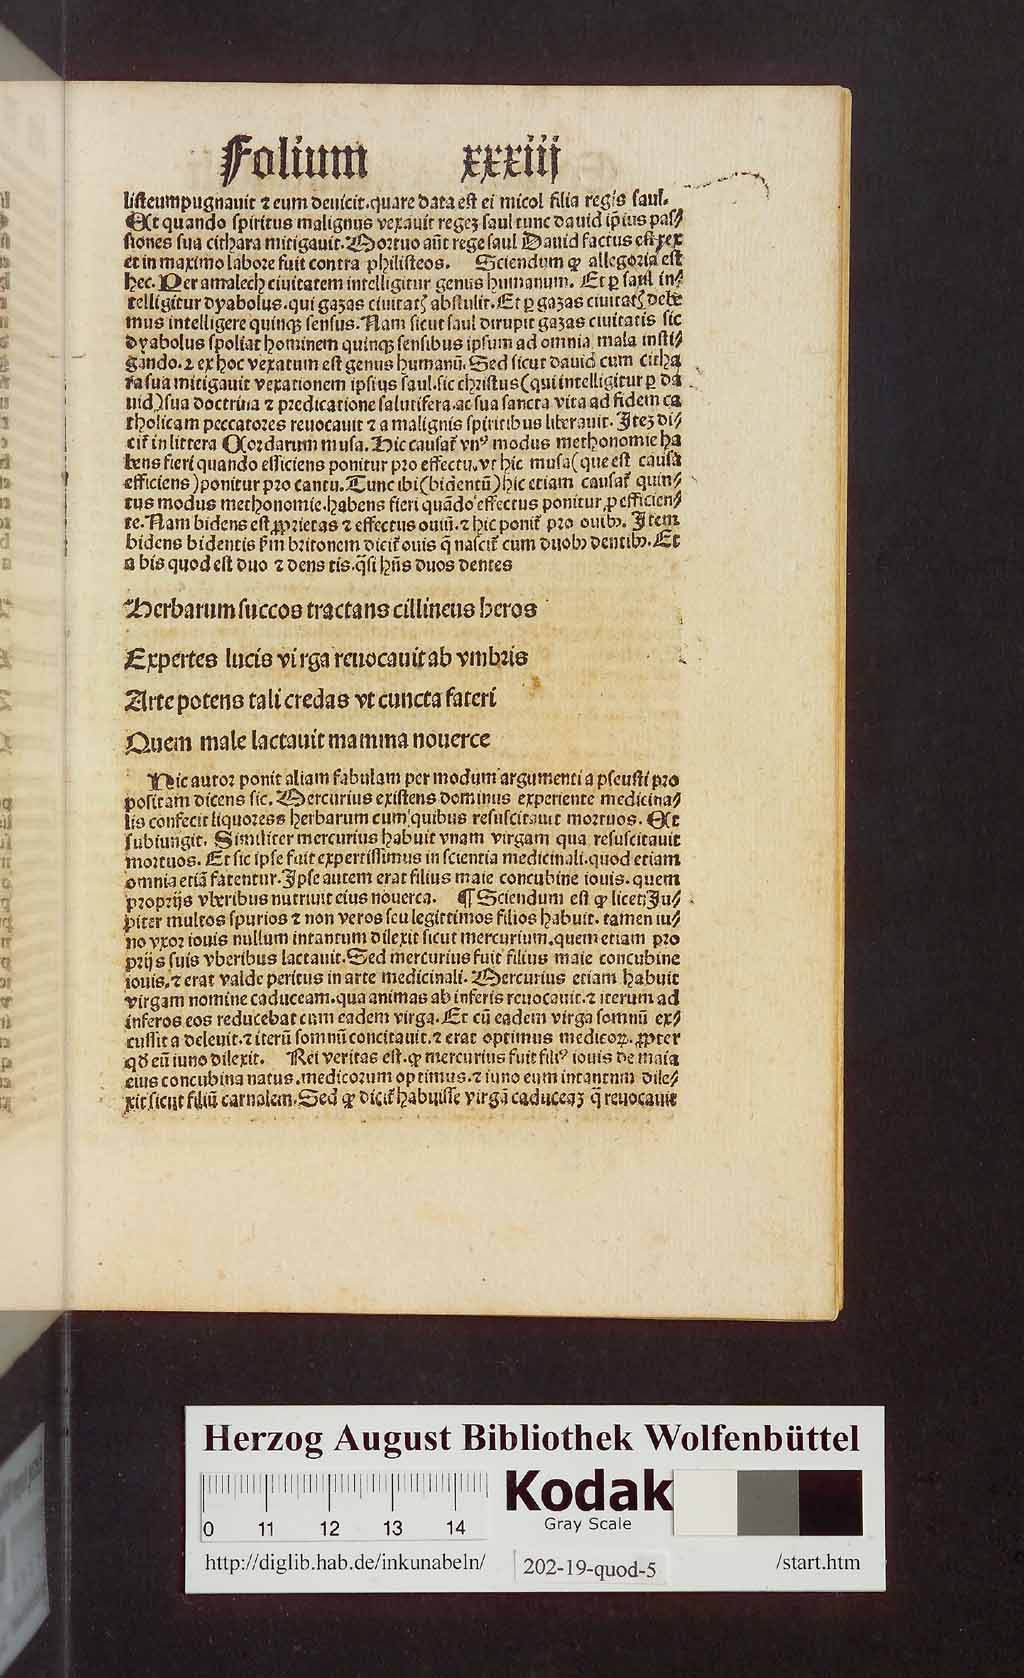 Folium xxxiij
listeum pugnauit ⁊ eum deuicit. quare data est ei micol filia regis saul.
At quando spiritus malignus vexauit regeꝫ saul tunc dauid ip̄ius pas⸗
siones sua cithara mitigauit. Mortuo aūt rege saul Dauid factus est rex
et in maximo labore fuit contra philisteos. Sciendum ꝙ allegoria est
hec. Per amalech ciuitatem intelligitur genus humanum. Et ꝑ saul in⸗
telligitur dyabolus. qui gazas ciuitatꝭ abstulit. Et ꝑ gazas ciuitatꝭ debe
mus intelligere quinqꝫ sensus. Nam sicut saul dirupit gazas ciuitatis sic
dyabolus spoliat hominem quinqꝫ sensibus ipsum ad omnia mala insti⸗
gando. ⁊ ex hoc vexatum est genus humanū. Sed sicut dauid cum citha
ra sua mitigauit vexationem ipsius saul. sic christus (qui intelligitur ꝑ da
uid) sua doctrina ⁊ predicatione salutifera. ac sua sancta vita ad fidem ca
tholicam peccatores reuocauit ⁊ a malignis spiritibus liberauit. Iteꝫ di⸗
cit̄ in littera Cordarum musa. Hic causat̄ vnꝰ modus methonomie ha
bens fieri quando efficiens ponitur pro effectu. vt hic musa (que est causa
efficiens) ponitur pro cantu. Tunc ibi (bidentū) hic etiam causat̄ quin⸗
tus modus methonomie. habens fieri quādo effectus ponitur ꝓ efficien⸗
te. Nam bidens est ꝓprietas ⁊ effectus ouiū. ⁊ hic ponit̄ pro ouibꝰ. Item
bidens bidentis ẜm britonem dicit̄ ouis q̄ nascit̄ cum duobꝰ dentibꝰ. Et
a bis quod est duo ⁊ dens tis. q̄si hn̄s duos dentes
Herbarum succos tractans cillineus heros
Expertes lucis virga reuocauit ab vmbris
Arte potens tali credas vt cuncta fateri
Quem male lactauit mamma nouerce
Hic autor ponit aliam fabulam per modum argumenti a pseusti pro
positam dicens sic. Mercurius existens dominus experiente medicina⸗
lis confecit liquoress herbarum cum quibus resuscitauit mortuos. Et
subiungit. Similiter mercurius habuit vnam virgam qua resuscitauit
mortuos. Et sic ipse fuit expertissimus in scientia medicinali. quod etiam
omnia etiā fatentur. Ipse autem erat filius maie concubine iouis. quem
proprijs vberibus nutriuit eius nouerca. ¶ Sciendum est ꝙ licet Ju⸗
piter multos spurios ⁊ non veros seu legittimos filios habuit. tamen iu⸗
no vxor iouis nullum intantum dilexit sicut mercurium. quem etiam pro
prijs suis vberibus lactauit. Sed mercurius fuit filius maie concubine
iouis. ⁊ erat valde peritus in arte medicinali. Mercurius etiam habuit
virgam nomine caduceam. qua animas ab inferis reuocauit. ⁊ iterum ad
inferos eos reducebat cum eadem virga. Et cū eadem virga somnū ex⸗
cussit a deleuit. ⁊ iterū somnū concitauit. ⁊ erat optimus medicoꝝ. ꝓpter
qd̄ eū iuno dilexit. Rei veritas est. ꝙ mercurius fuit filiꝰ iouis de maia
eius concubina natus. medicorum optimus. ⁊ iuno eum intantum dile⸗
xit sicut filiū carnalem. Sed ꝙ dicit̄ habuisse virgā caduceaꝫ q̄ reuocauit
Herzog August Bibliothek Wolfenbüttel
0 11 12 13 14
Kodak
Gray Scale
http://diglib.hab.de/inkunabeln/ 202-19-quod-5 /start.htm